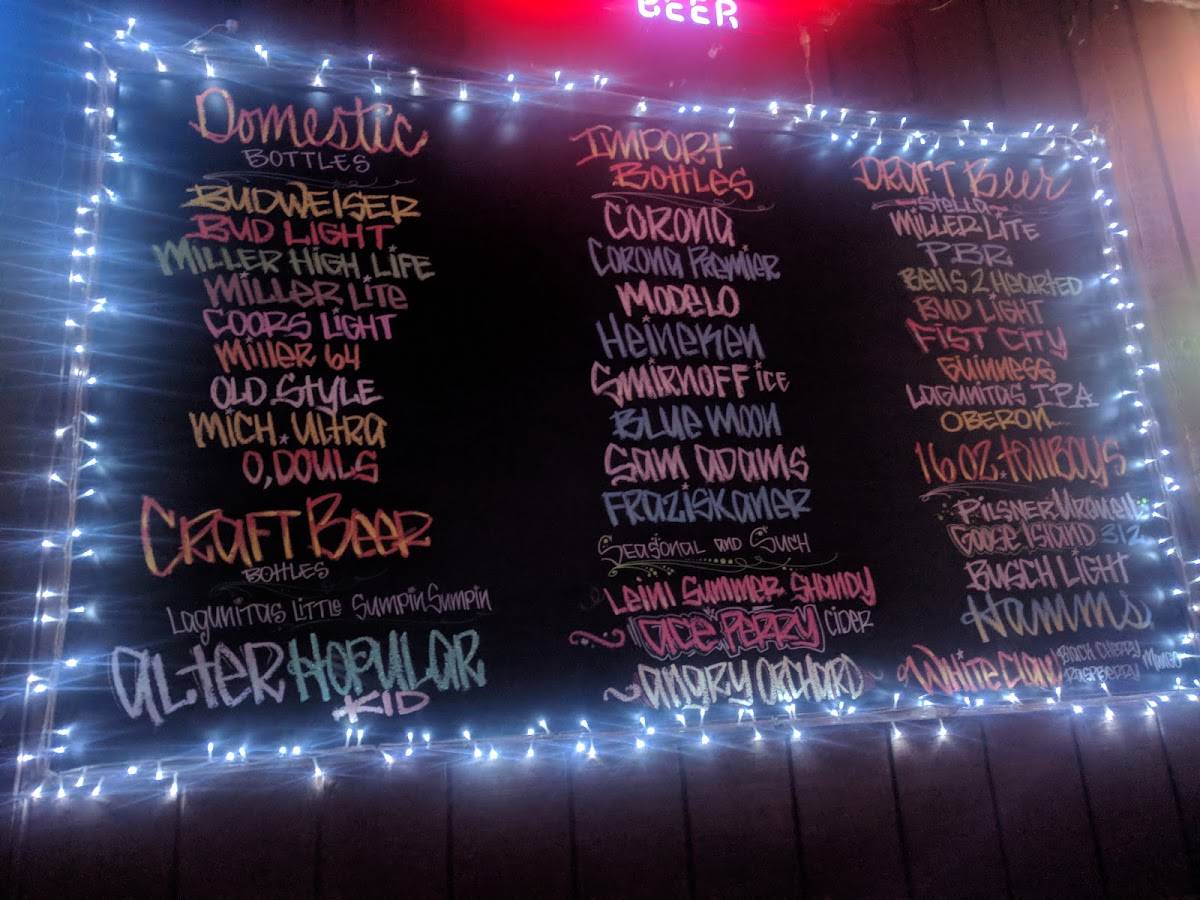 BEER
Domestic
BOTTLES
BUDWEISER
BUD LIGHT
MILLER HIGH LIFE
MILLER LITE
COORS LIGHT
MILLER 64
OLD STYLE
MICH. ULTRA
O, DOULS
CRAFT BEER
BOTTLES
LAGUNITAS LITTLE SUMPIN SUMPIN
ALTER HOPULAR
KID
IMPORT
BOTTLES
CORONA
CORONA PREMIER
MODELO
HEINEKEN
SMIRNOFF ICE
BLUE MOON
SAM ADAMS
FRAZISKANER
SEASONAL AND SUCH
LEINI SUMMER SHANDY
ACE PERRY CIDER
ANGRY ORCHARD
DRAFT BEER
STELLA
MILLER LITE
PBR
BELLS 2 HEARTED
BUD LIGHT
FIST CITY
GUINNESS
LAGUNITAS IPA
OBERON
16 OZ. TALLBOYS
PILSNER URQUELL
GOOSE ISLAND 312
BUSCH LIGHT
HAMMS
WHITE CLAW BLACK CHERRY
RASPBERRY MANGO